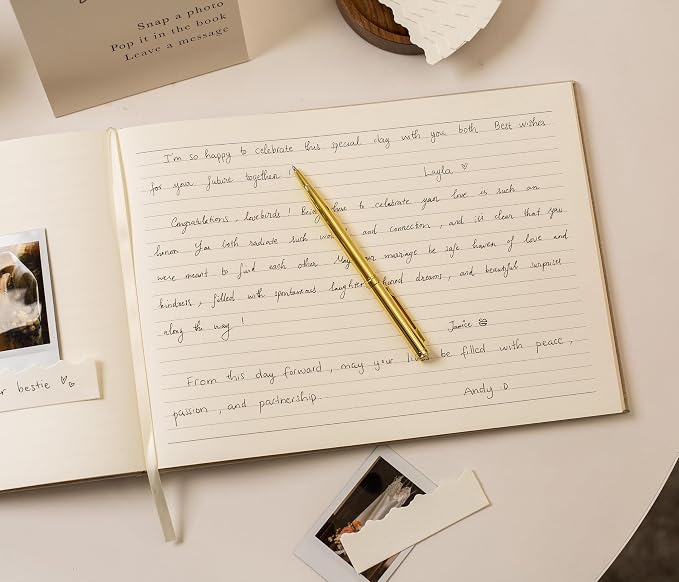 Snap a photo
Pop it in the book
Leave a message
I'm so happy to celebrate this special day with you both Best wishes
for your future together !
Layla ♡
Congratulations , lovebirds ! Being here to celebrate your love is such an
honor You both radiate such and connection , and it's clear that you
were meant to find each other May your marriage be safe haven of love and
kindness , filled with spontaneous laughter dreams , and beautiful surprises
along the way !
Janice
From this day forward , may your be filled with peace ,
passion , and partnership.
Andy D
bestie ♡♡